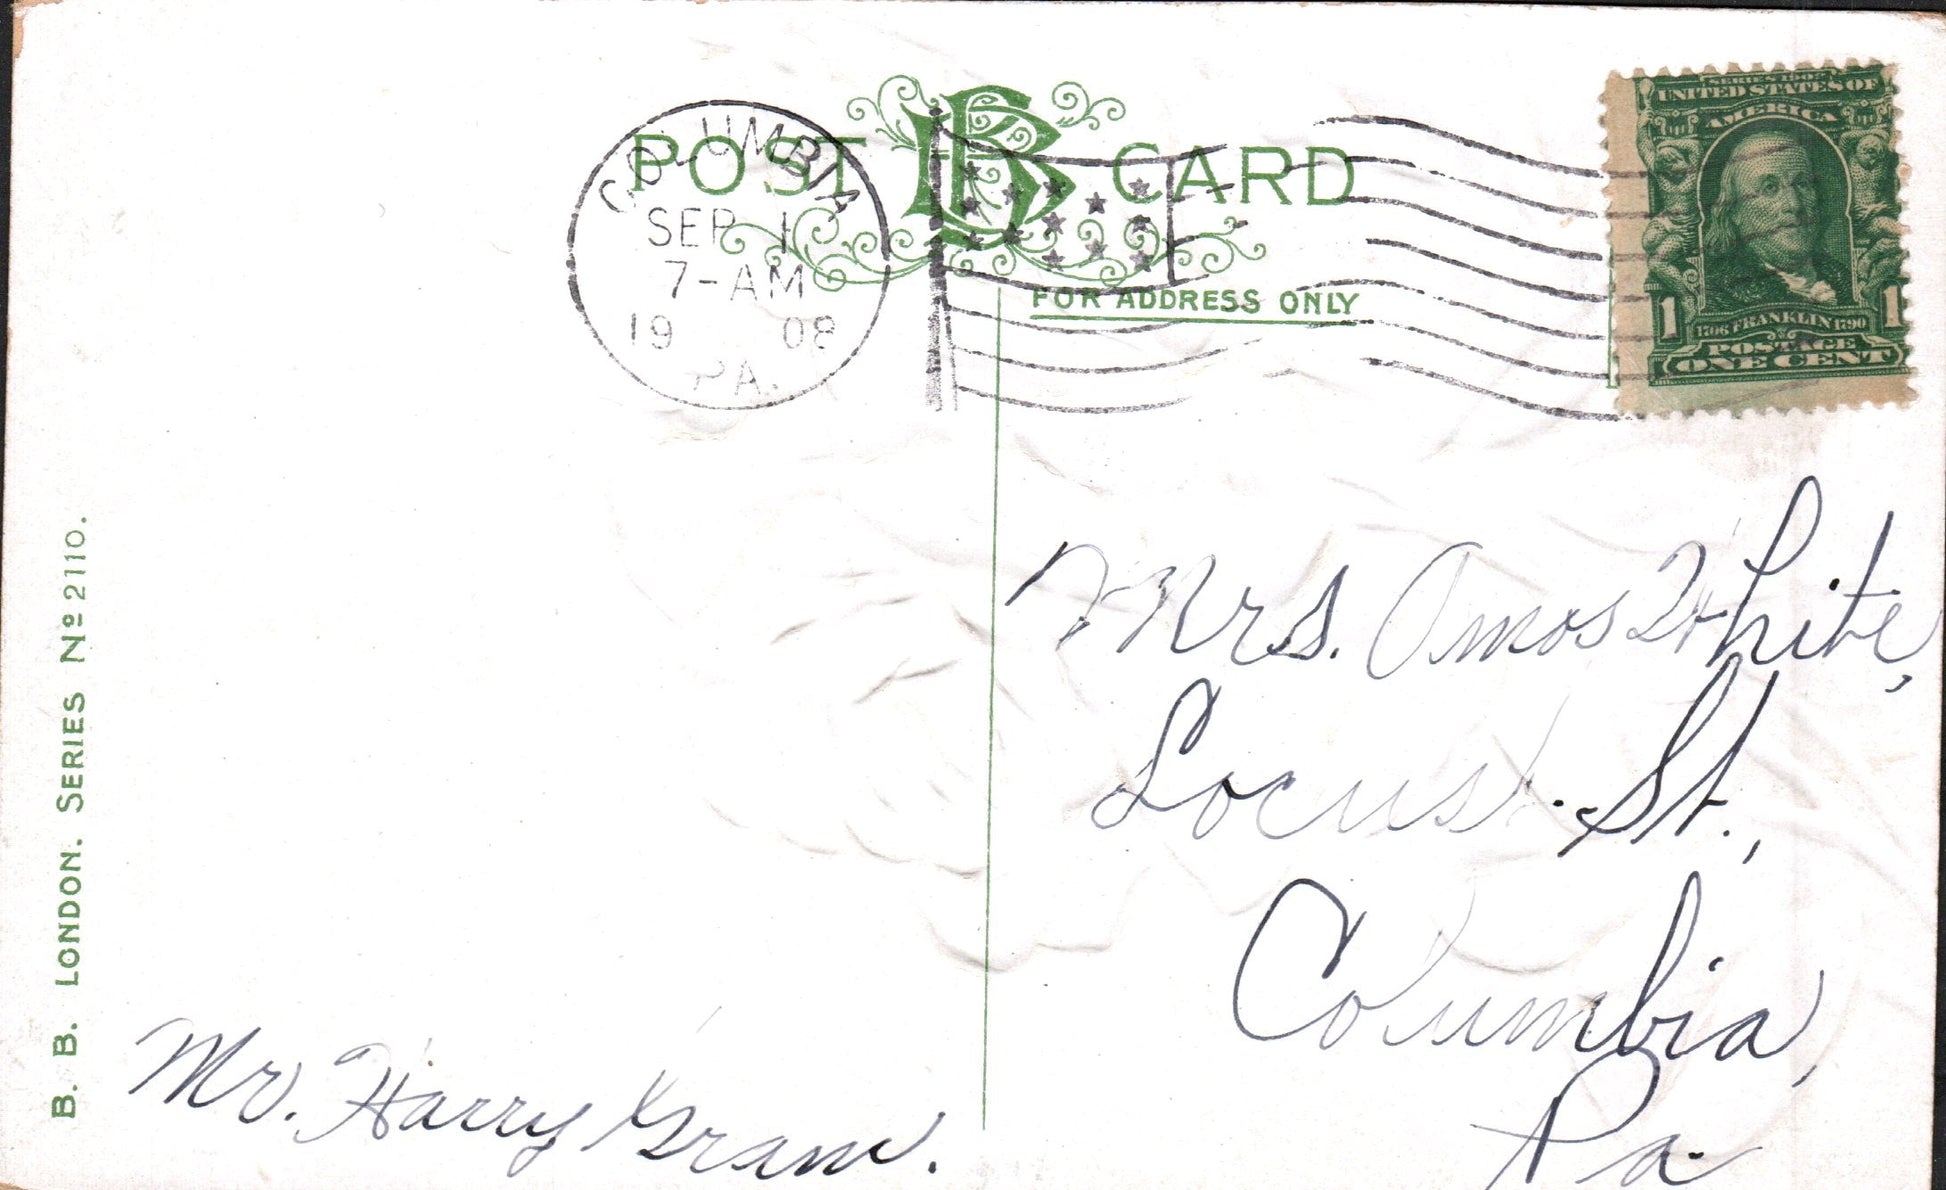 POST CARD
FOR ADDRESS ONLY
COLUMBIA
SEP 1
7-AM
1908
PA.
SERIES 1902
UNITED STATES OF
AMERICA
1 1
1706 FRANKLIN 1790
POSTAGE
ONE CENT
Mrs. Amos White,
Locust. St.,
Columbia,
Pa.
Mr. Harry Gram.
B. B. LONDON. SERIES Nº 2110.